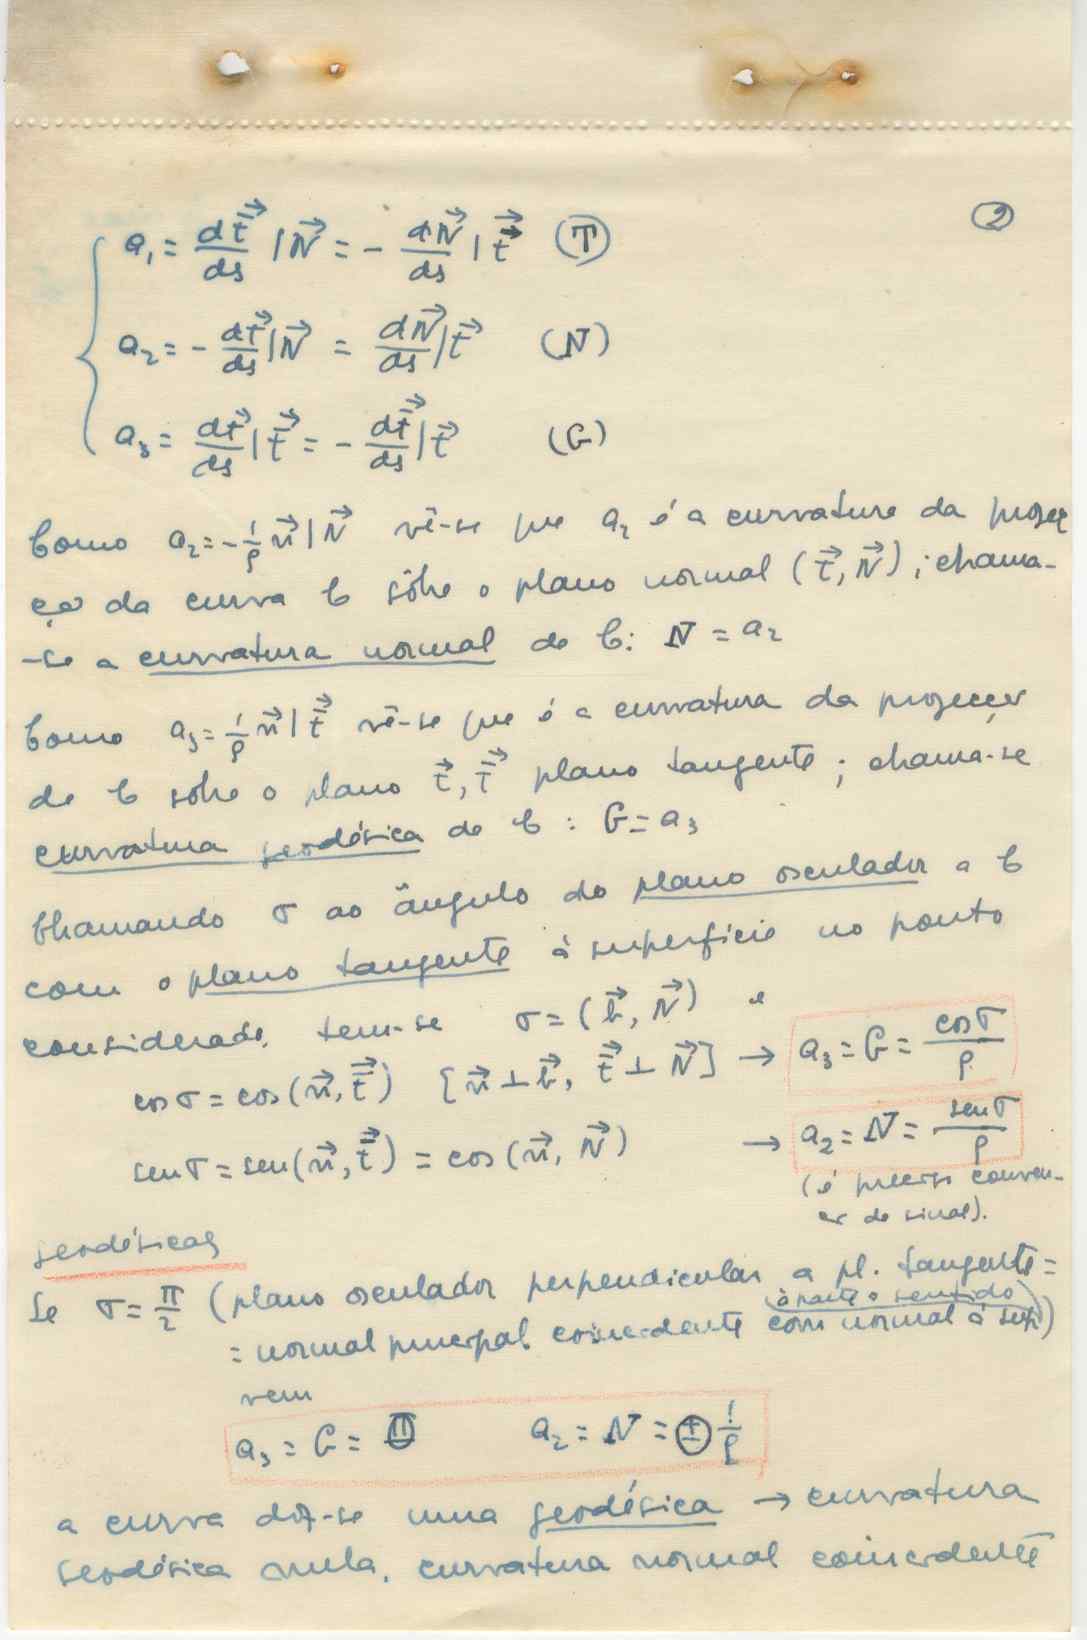 ②
a₁ = d\vec{\bar{t}}/ds | \vec{N} = - d\vec{N}/ds | \vec{\bar{t}} (T)
a₂ = - d\vec{t}/ds | \vec{N} = d\vec{N}/ds | \vec{t} (N)
a₃ = d\vec{t}/ds | \vec{\bar{t}} = - d\vec{\bar{t}}/ds | \vec{t} (G)
Como a₂ = - 1/ρ \vec{n} | \vec{N} vê-se que a₂ é a curvatura da projec
ção da curva C sôbre o plano normal (\vec{t}, \vec{N}); chama-
-se a curvatura normal de C: N = a₂
Como a₃ = 1/ρ \vec{n} | \vec{\bar{t}} vê-se que é a curvatura da projecção
de C sôbre o plano \vec{t}, \vec{\bar{t}} plano tangente; chama-se
curvatura geodésica de C: G = a₃
Chamando σ ao ângulo do plano osculador a C
com o plano tangente à superfície no ponto
considerado, tem-se σ = (\vec{b}, \vec{N}) e
cos σ = cos(\vec{n}, \vec{\bar{t}}) [\vec{n} ⊥ \vec{b}, \vec{\bar{t}} ⊥ \vec{N}] → a₃ = G = cos σ/ρ
sen σ = sen(\vec{n}, \vec{\bar{t}}) = cos(\vec{n}, \vec{N}) → a₂ = N = sen σ/ρ
(é preciso conven-
er de sinal).
geodésicas
Se σ = π/2 (plano osculador perpendicular a pl. tangente =
(à parte o sentido)
= normal principal coincidente com normal à sup)
vem
a₃ = G = 0 a₂ = N = ± 1/ρ
a curva diz-se uma geodésica → curvatura
geodésica nula, curvatura normal coincidente